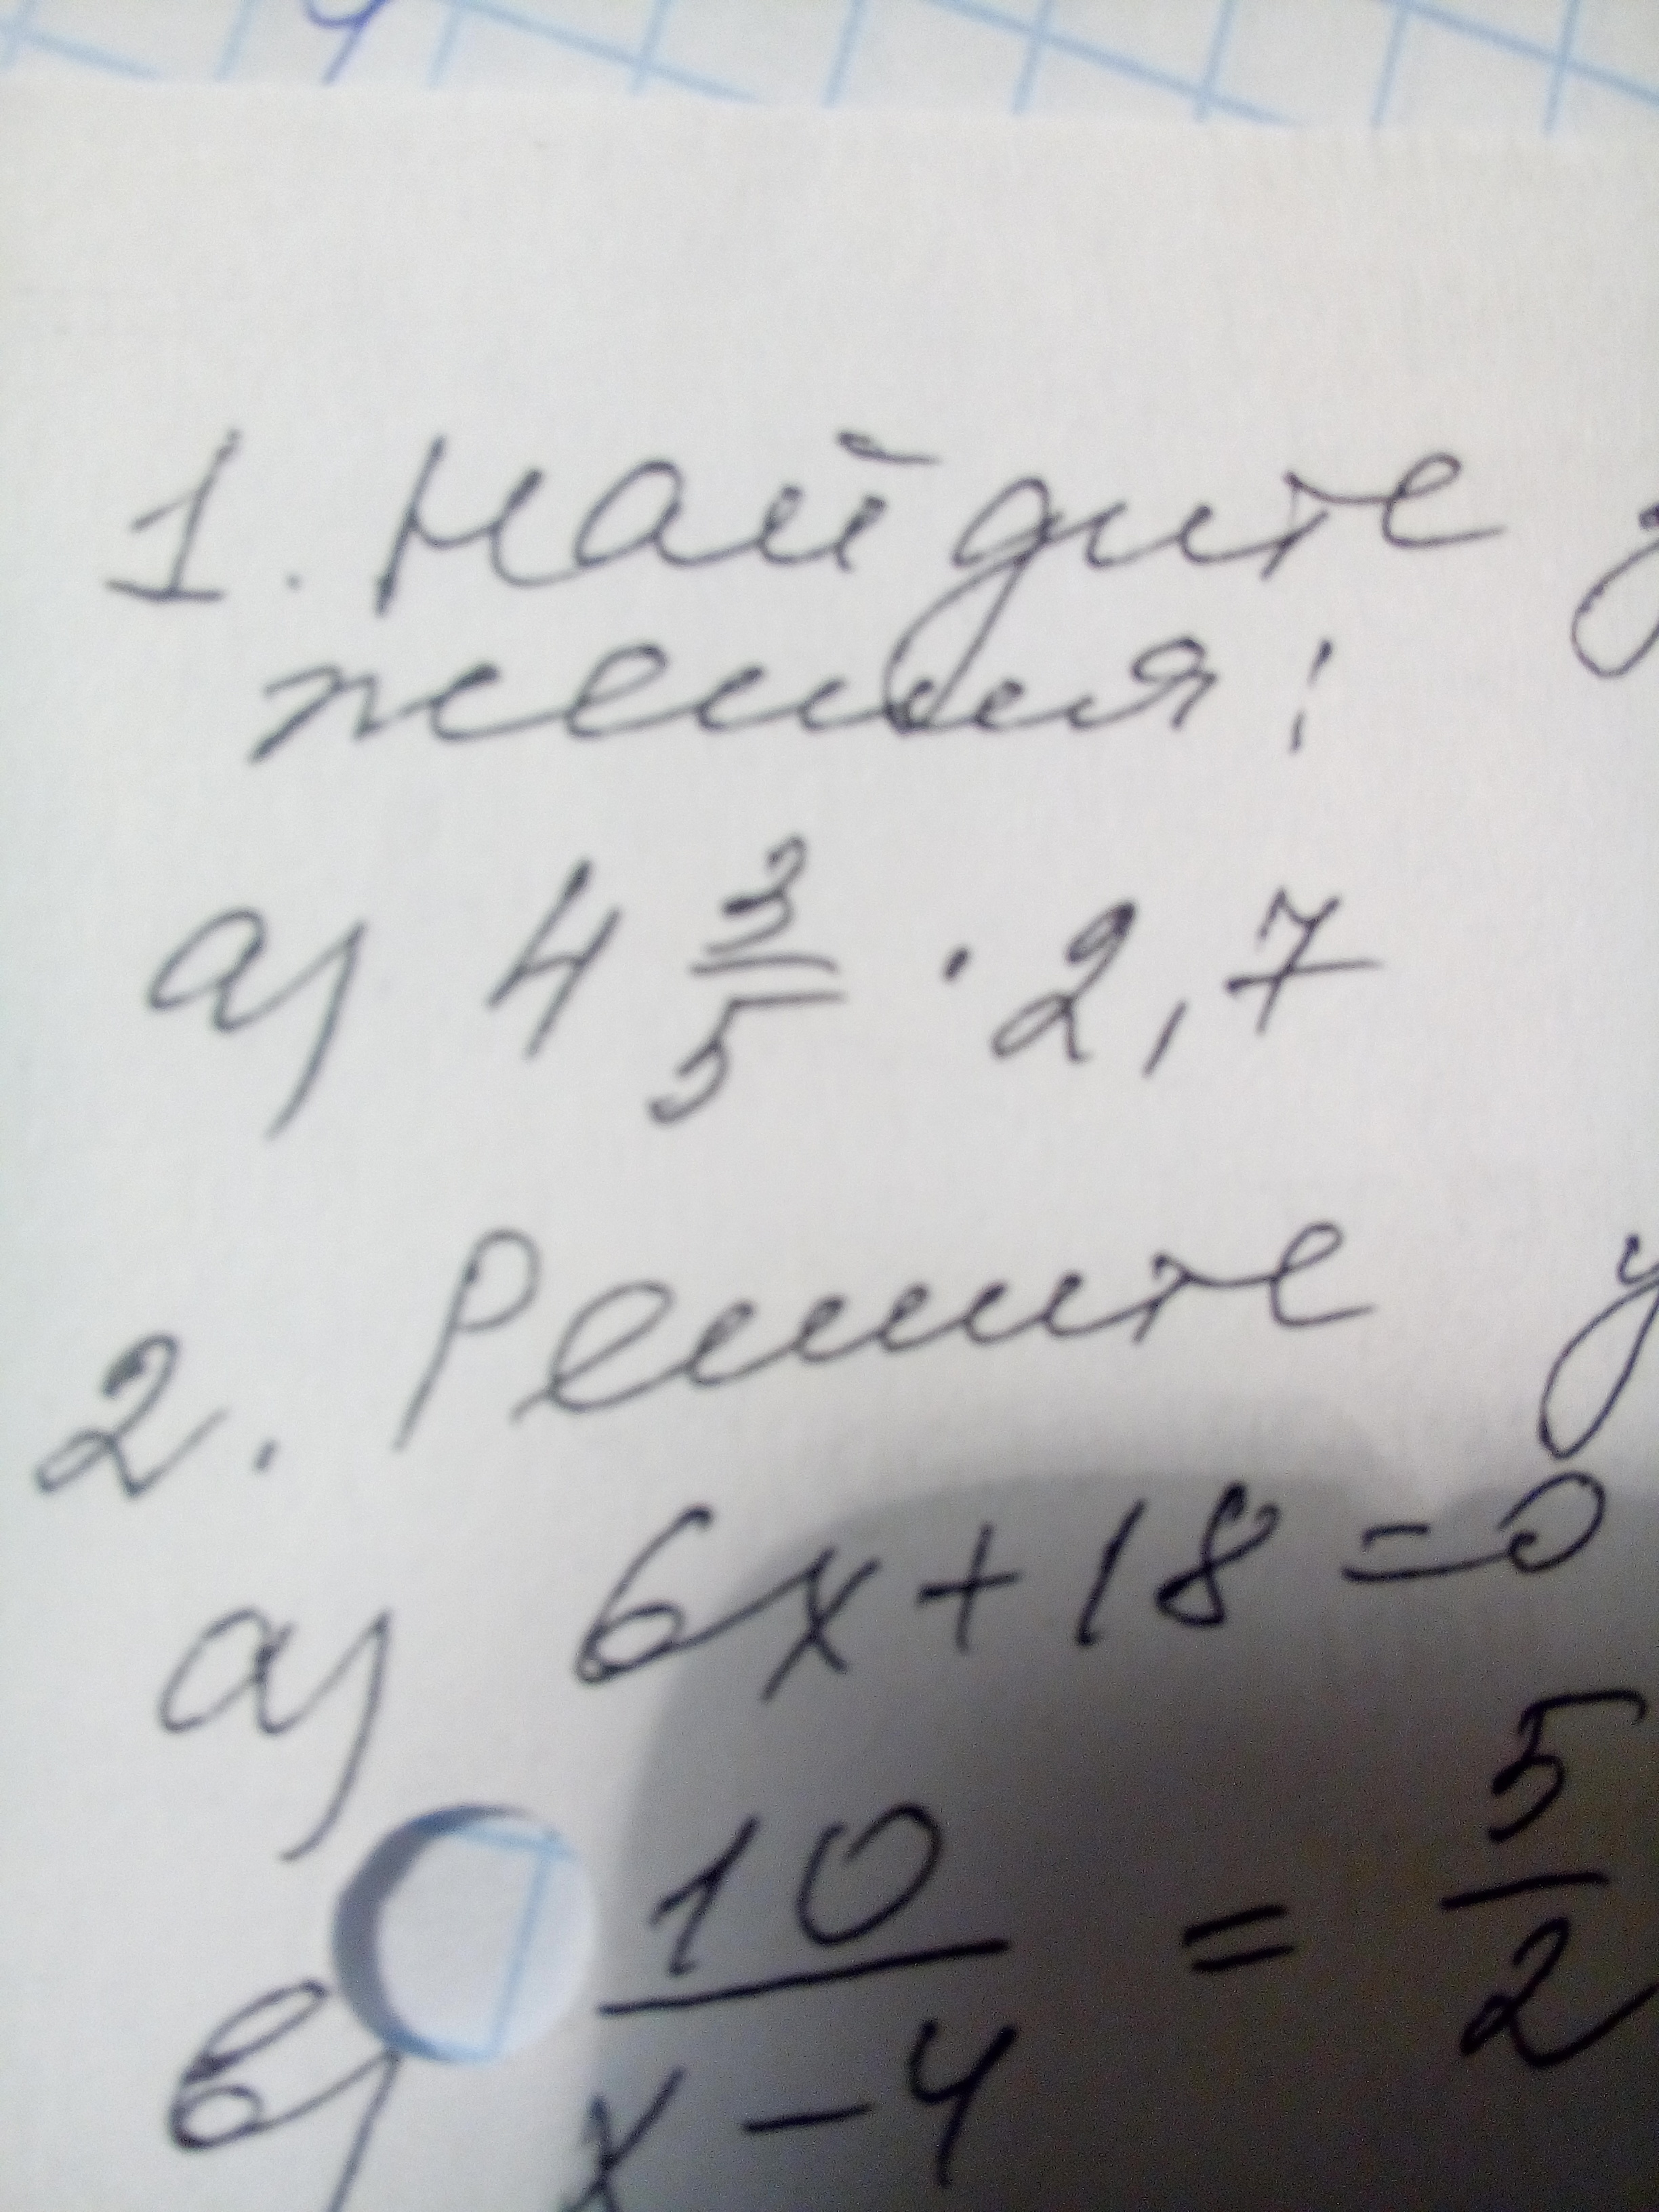 1. Найдите
жения:
а) 4 3/5 · 2,7
2. Решите у
а) 6x + 18 = 0
в) 10/(x - 4) = 5/2